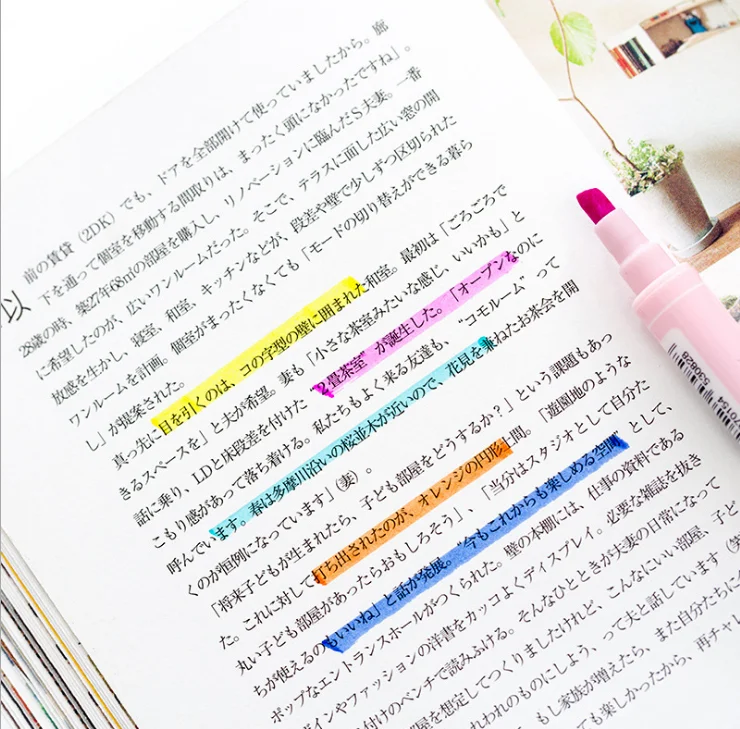 以
前の賃貸（2DK）でも、ドアを全部開けて使っていましたから。廊
下を通って個室を移動する間取りは、まったく頭になかったですね」。
28歳の時、築27年68㎡の部屋を購入し、リノベーションに臨んだS夫妻。一番
に希望したのが、広いワンルームだった。そこで、テラスに面した広い窓の開
放感を生かし、寝室、和室、キッチンなどが、段差や壁で少しずつ区切られた
ワンルームを計画。個室がまったくなくても「モードの切り替えができる暮ら
し」が提案された。
真っ先に目を引くのは、コの字型の壁に囲まれた和室。最初は「ごろごろで
きるスペースを」と夫が希望。妻も「小さな茶室みたいな感じ、いいかも」と
話に乗り、LDと床段差を付けた“2畳茶室”が誕生した。「オープンなのに
こもり感があって落ち着ける。私たちもよく来る友達も、“コモルーム”って
呼んでいます。春は多摩川沿いの桜並木が近いので、花見を兼ねたお茶会を開
くのが恒例になっています」（妻）。
「将来子どもが生まれたら、子ども部屋をどうするか？」という課題もあっ
た。これに対して打ち出されたのが、オレンジの円形土間。「遊園地のような
丸い子ども部屋があったらおもしろそう」、「当分はスタジオとして自分た
ちが使えるのもいいね」と話が発展。“今もこれからも楽しめる空間”として、
ポップなエントランスホールがつくられた。壁の本棚には、仕事の資料である
ザインやファッションの洋書をカッコよくディスプレイ。必要な雑誌を抜き
付けのベンチで読みふける。そんなひとときが夫妻の日常になって
部屋を想定してつくりましたけれど、こんなにいい部屋、子ど
われのものにしよう、って夫と話しています（笑
もし家族が増えたら、また自分たちに
ても楽しかったから、再チャレ